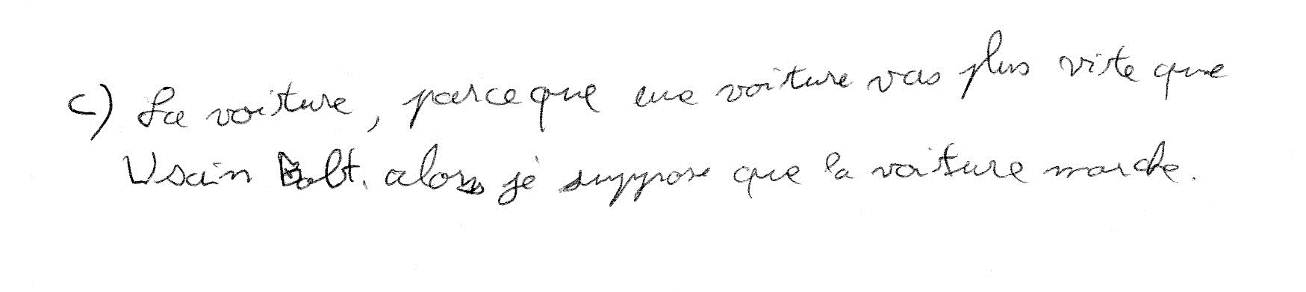 c) La voiture, parce que une voiture vas plus vite que
Usain Bolt. alors je suppose que la voiture marche.